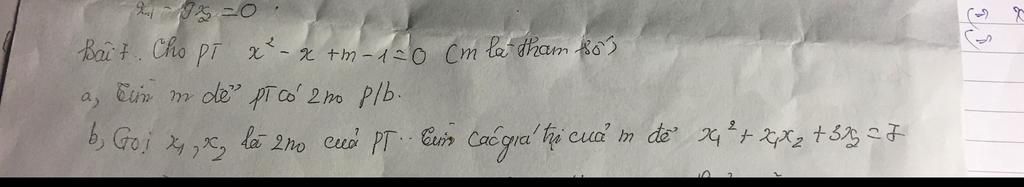 x₁ - 9x₂ = 0.
Bài 7. Cho PT x² - x + m - 1 = 0 (m là tham số)
a, Tìm m để PT có 2 no p/b.
b, Gọi x₁, x₂ là 2 no của PT. Tìm các giá trị của m để x₁² + x₁x₂ + 3x₂ = 7